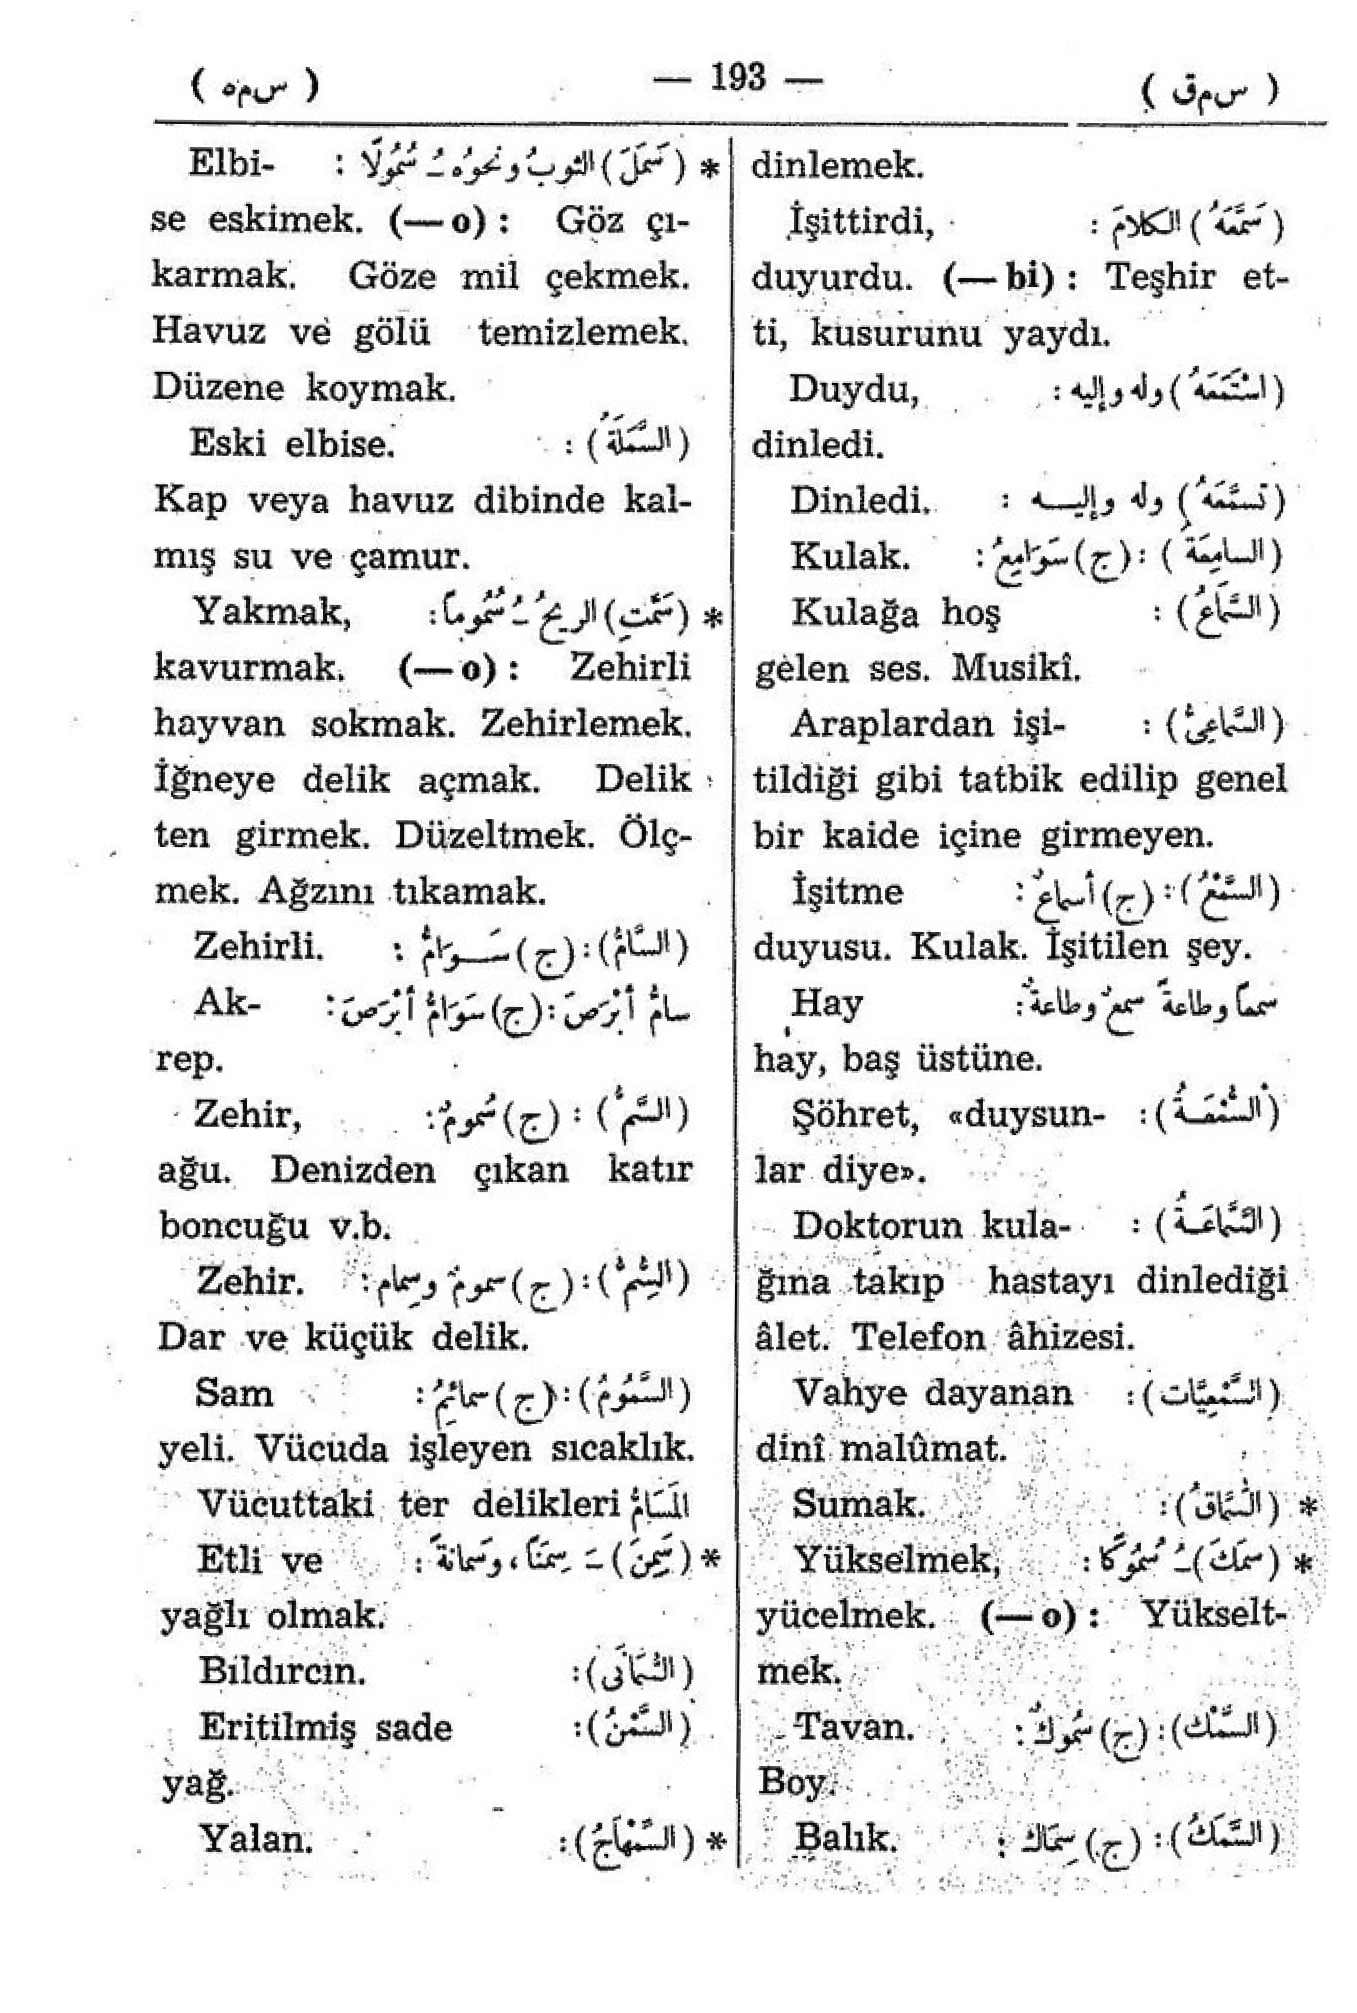 ( س م ق ) — 193 — ( س م ه )
dinlemek.
(سَمَّعَهُ) الكلامَ : İşittirdi,
duyurdu. (— bi) : Teşhir et-
ti, kusurunu yaydı.
(اسْتَمَعَهُ) وله وإليه : Duydu,
dinledi.
(تسمَّعَهُ) وله وإليه : Dinledi.
(السامِعَةُ) : (ج) سَوَامِعُ : Kulak.
(السَّمَاعُ) : Kulağa hoş
gelen ses. Musikî.
(السَّمَاعِيُّ) : Araplardan işi-
tildiği gibi tatbik edilip genel
bir kaide içine girmeyen.
(السَّمْعُ) : (ج) أسماعٌ : İşitme
duyusu. Kulak. İşitilen şey.
سمعاً وطاعةً سمعٌ وطاعةٌ : Hay
hay, baş üstüne.
(السُّمْعَةُ) : Şöhret, «duysun-
lar diye».
(السَّمَّاعَةُ) : Doktorun kula-
ğına takıp hastayı dinlediği
âlet. Telefon âhizesi.
(السَّمْعِيَّات) : Vahye dayanan
dinî malûmat.
* (السُّمَّاقُ) : Sumak.
* (سمَكَ) ـُ سُمُوكًا : Yükselmek,
yücelmek. (— o) : Yükselt-
mek.
(السَّمْك) : (ج) سُمُوكٌ : Tavan.
Boy.
(السَّمَكُ) : (ج) سِمَاك : Balık.
* (سَمَلَ) الثوبُ ونحوُه ـُ سُمُولًا : Elbi-
se eskimek. (— o) : Göz çı-
karmak. Göze mil çekmek.
Havuz ve gölü temizlemek.
Düzene koymak.
(السَّمَلَةُ) : Eski elbise.
Kap veya havuz dibinde kal-
mış su ve çamur.
* (سَمَّتِ) الريحُ ـُ سُمُوماً : Yakmak,
kavurmak. (— o) : Zehirli
hayvan sokmak. Zehirlemek.
İğneye delik açmak. Delik
ten girmek. Düzeltmek. Ölç-
mek. Ağzını tıkamak.
(السَّامُّ) : (ج) سَوَامُّ : Zehirli.
سامُّ أبْرَصَ : (ج) سَوَامُّ أبْرَصَ : Ak-
rep.
(السَّمُّ) : (ج) سُمومٌ : Zehir,
ağu. Denizden çıkan katır
boncuğu v.b.
(السِّمُّ) : (ج) سموم وسِمام : Zehir.
Dar ve küçük delik.
(السَّمُومُ) : (ج) سمائِمُ : Sam
yeli. Vücuda işleyen sıcaklık.
المَسَامُّ Vücuttaki ter delikleri
* (سَمِنَ) ـَ سِمَناً ، وسَمانةً : Etli ve
yağlı olmak.
(السُّمَانَى) : Bıldırcın.
(السَّمْنُ) : Eritilmiş sade
yağ.
* (السَّمْهَاجُ) : Yalan.